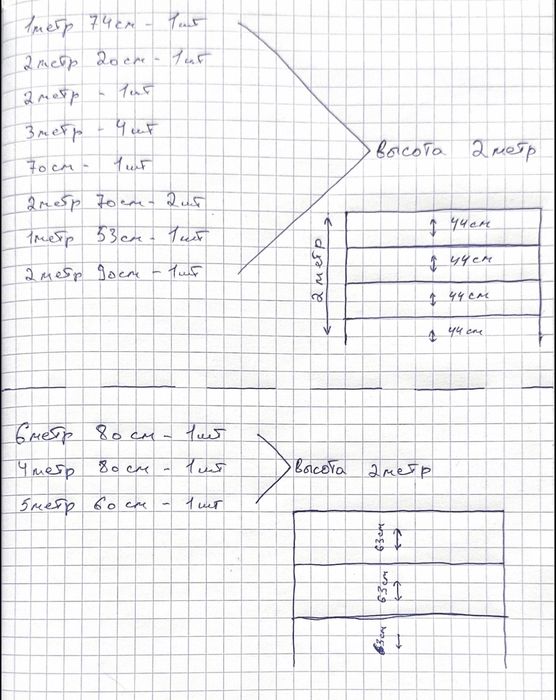 1метр 74см - 1шт
2метр 20см - 1шт
2метр - 1шт
3метр - 4шт
70см - 1шт
2метр 70см - 2шт
1метр 53см - 1шт
2метр 90см - 1шт
Высота 2метр
2метр
44см
44см
44см
44см
6метр 80см - 1шт
4метр 80см - 1шт
5метр 60см - 1шт
Высота 2метр
63см
63см
63см